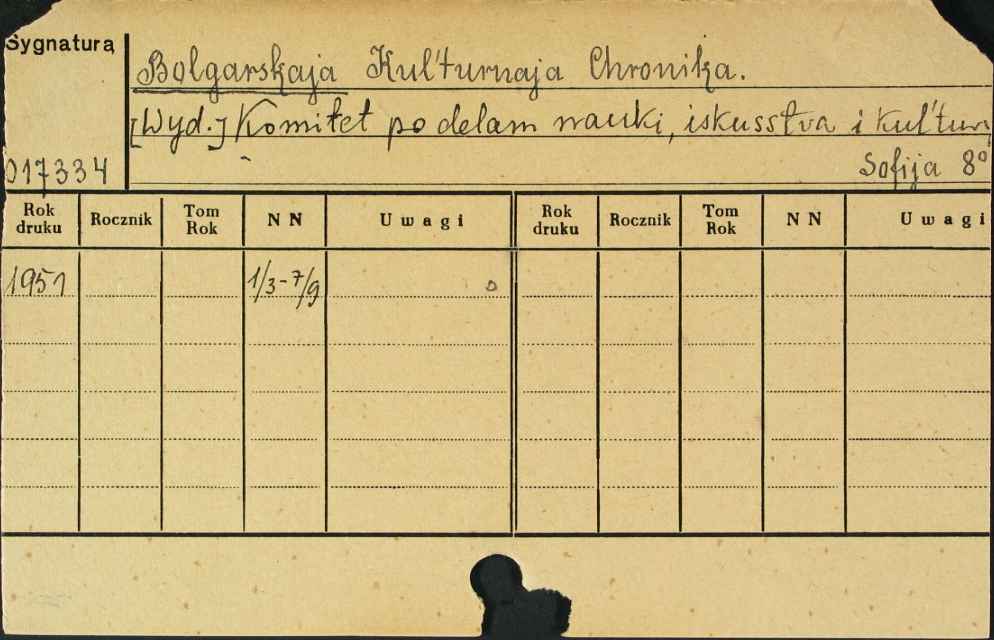 Sygnatura
Bolgarskaja Kul'turnaja Chronika.
[Wyd.] Komitet po delam nauki, iskusstva i kul'tur
017334
Sofija 8°
Rok druku Rocznik Tom Rok NN Uwagi Rok druku Rocznik Tom Rok NN Uwagi
1951 1/3-7/9